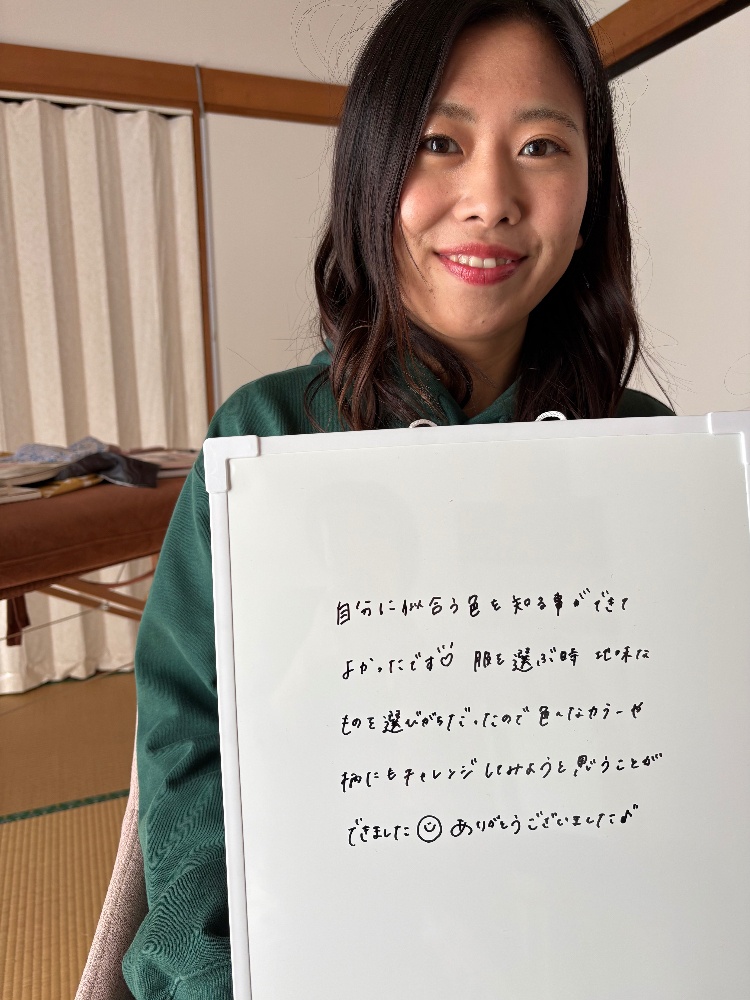 自分に似合う色を知る事ができて
よかったです♡ 服を選ぶ時 地味な
ものを選びがちだったので色々なカラーや
柄にもチャレンジしてみようと思うことが
できました☺ ありがとうございました♪